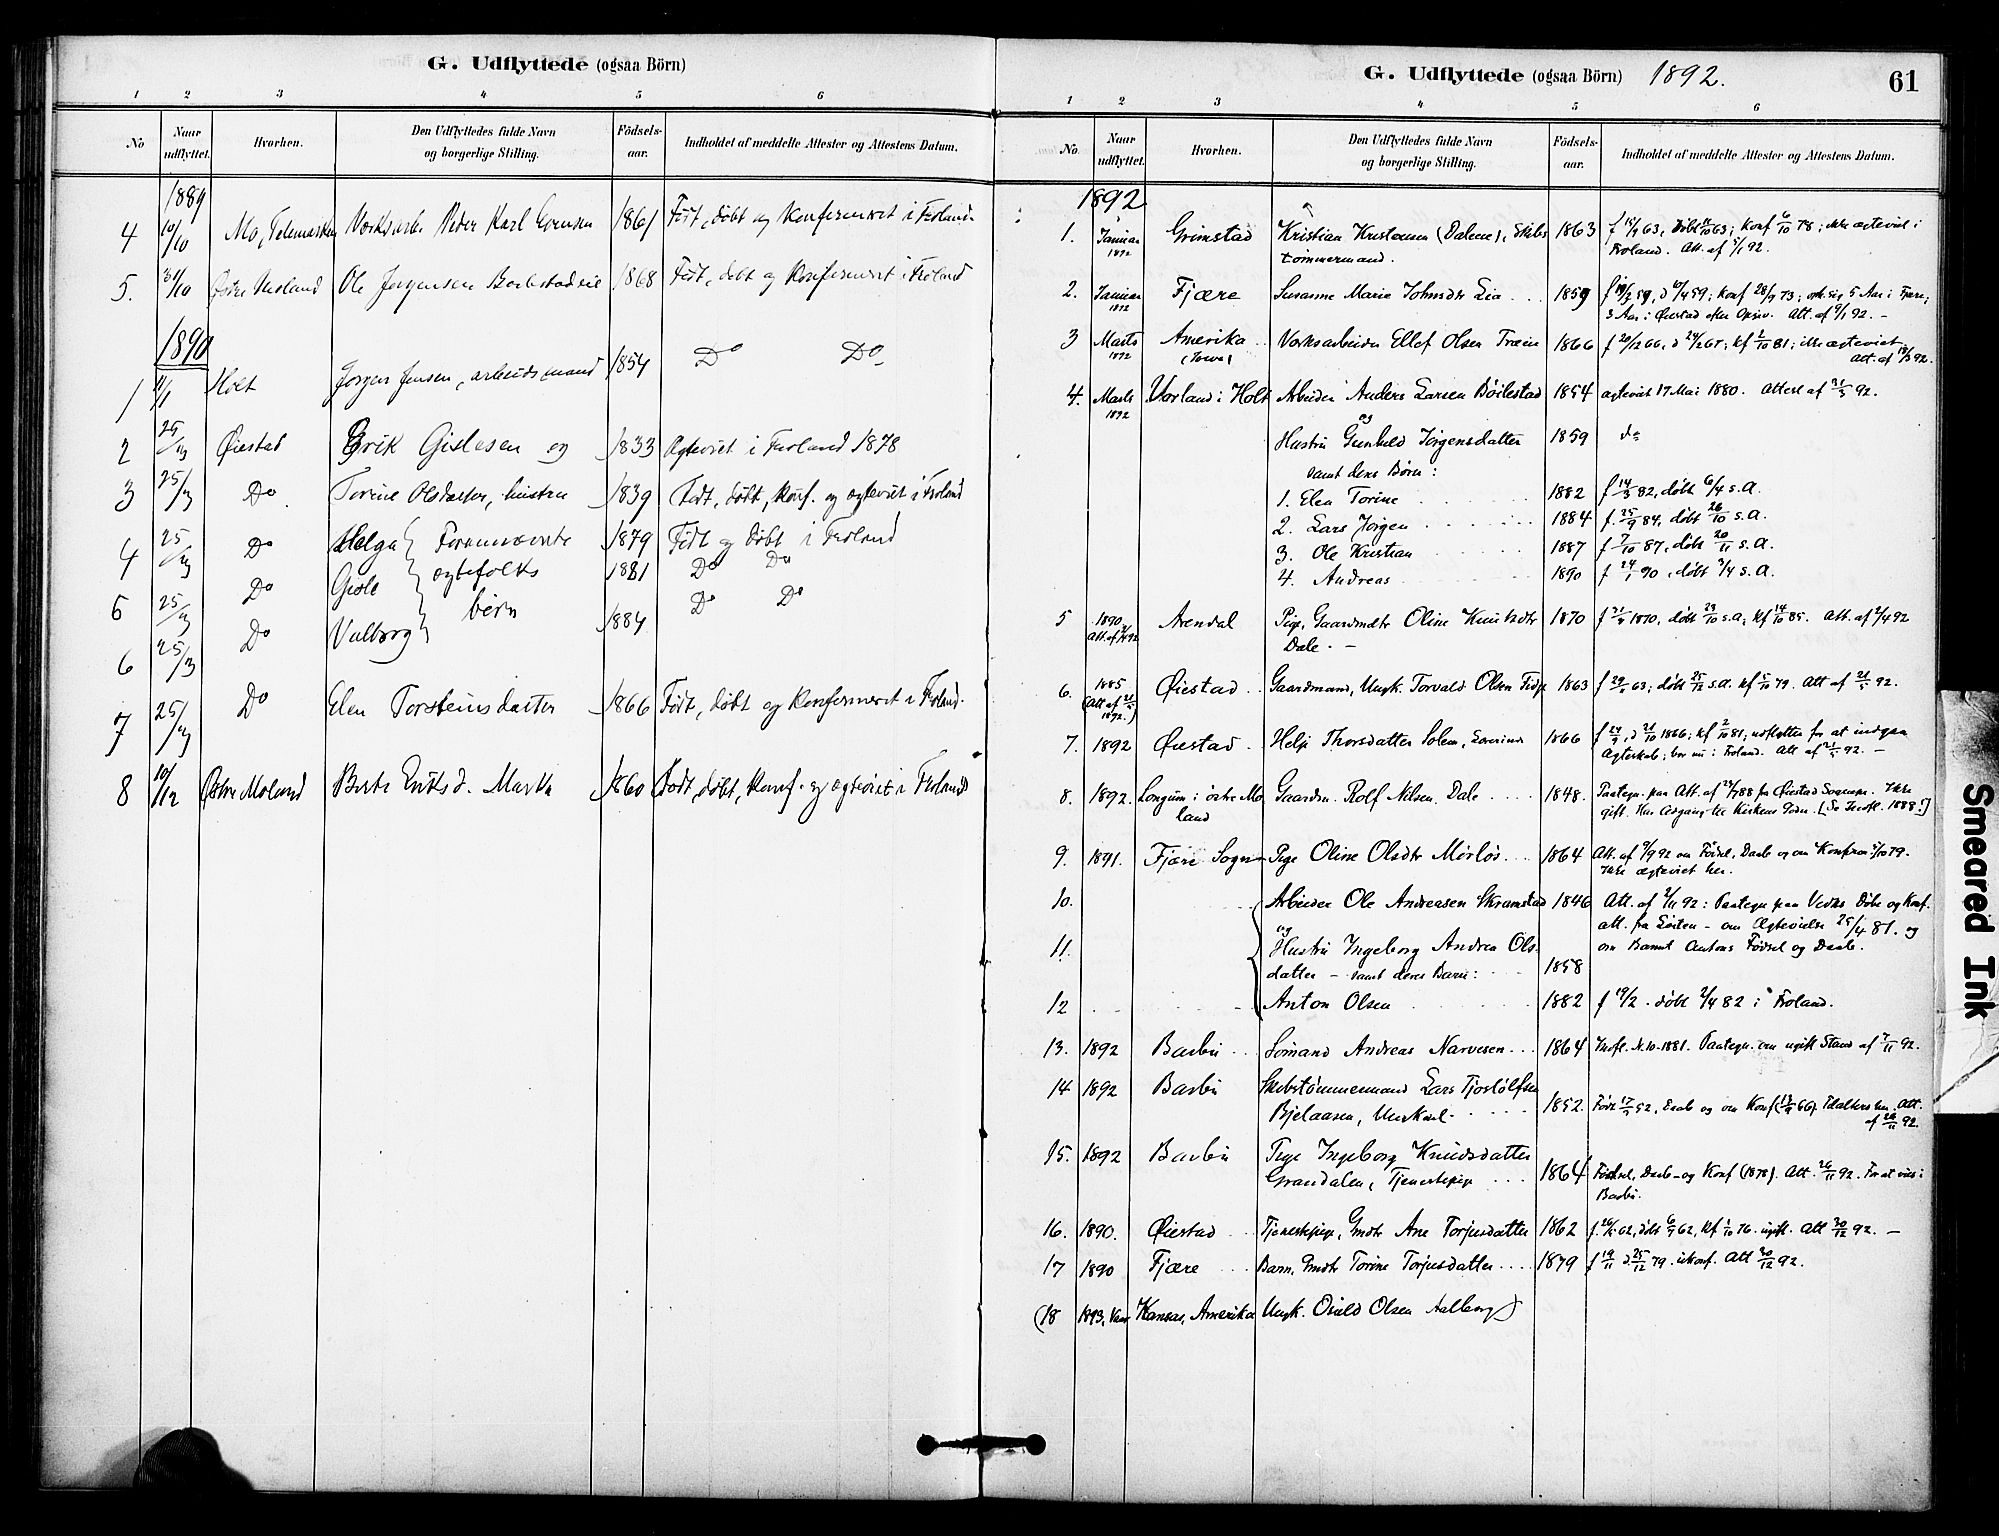 G. Udflyttede (ogsaa Börn)
1 2 3 4 5 6
No
Naar udflyttet.
Hvorhen.
Den Udflyttedes fulde Navn og borgerlige Stilling.
Födsels-aar.
Indholdet af meddelte Attester og Attestens Datum.
1889
4 10/10 Mo, Telemarken Peder Karl 1861 Født, døbt og konfirmeret i Froland.
5. 31/10 Østre Moland Ole Jørgensen 1868 Født, døbt og konfirmeret i Froland
1890
1 11/1 Holt Jørgen Jensen, arbeidsmand 1854 Do Do
2 25/3 Øiestad Erik Gislesen og 1833 Ægteviet i Froland 1878
3 25/3 Do. Torine Olsdatter, hustru 1839 Født, døbt, konf. og ægteviet i Froland
4 25/3 Do Helga Forannævnte 1879 Født og døbt i Froland
5 25/3 Do Gisle ægtefolks 1881 Do Do
6 25/3 Do Valborg børn 1884 Do Do
7 25/3 Do Elen Torsteinsdatter 1866 Født, døbt og konfirmeret i Froland.
8 10/12 Østre Moland Berte 1860 Født, døbt, konf. og ægteviet i Froland
G. Udflyttede (ogsaa Börn) 1892.
61
1 2 3 4 5 6
No.
Naar udflyttet.
Hvorhen.
Den Udflyttedes fulde Navn og borgerlige Stilling.
Födsels-aar.
Indholdet af meddelte Attester og Attestens Datum.
1892
1. Januar 1892 Grimstad Kristian Kristensen (Dalene), Skibs 1863 f 15/9 63, døbt 63; konf 6/10 78; ikke ægteviet i
tømmermand. Froland. Att. af 5/1 92.
2. Januar 1892 Fjære Susanne Marie Johnsdtr Lia 1859 59; konf 28/9 73; oph. sig 5 Aar i Fjære;
3 Aar i Øiestad efter Opgiv. Att. af 9/1 92. –
3 Marts 1892 Amerika Værksarbeider Ellef Olsen 1866 f 20/12 66, d 24/2 67; kf 2/10 81; ikke ægteviet
Att. af 92.
4. Marts 1892 i Holt Arbeider Anders Larsen Bøilestad 1854 ægteviet 17 Mai 1880. Attest af 31/3 92.
og
Hustru Gunhild Jørgensdatter 1859 do
samt deres Børn:
1. Elen Torine 1882 f 14/3 82, døbt 6/4 s.A.
2. Lars Jørgen 1884 f. 25/9 84, døbt 26/10 s.A.
3. Ole Kristian 1887 f 7/10 87, døbt 20/11 s.A.
4. Andreas 1890 f 24/1 90, døbt 7/4 s.A.
5 1890 Arendal Pige, Gaardmdtr Oline Knutsdtr 1870 f 1870, døbt s.A; kf 85. Att. af 2/4 92
Dale. –
6. 1885 Øiestad Gaardmand, Ungk. Torvald Olsen 1863 63; døbt 25/12 s.A. kf 5/10 79. Att af 21/5 92.
7. 1892 Øiestad Helje Thorsdatter Solem 1866 1866; kf 2/10 81; udflytter for at indgaa
Ægteskab; bor nu i Froland. Att af 92. –
8. 1892. Longum i østre Mo Gaardm. Rolf Nilsen Dale 1848. Paategn. paa Att. af 24/7 88 fra Øiestad Sognepr. Ikke
land gift. Har Adgang til Kirkens Goder. [Se Indfl. 1888!]
9. 1891. Fjære Sogn Pige Oline Olsdtr Mørløs 1864 Att. af 7/9 92 om Fødsel, Daab og om Konfirm 5/10 79.
Ikke ægteviet her.
10. Arbeider Ole Andreasen Skramstad 1846 Att. af 2/11 92: Paategn paa Døbe og Konf.
og att. fra Løiten – om Ægtevielse 25/4 81. og
11. Hustru Ingeborg Andrea Ols om Barnet Antons Fødsel og Daab.
datter – samt deres Barn: 1858
12 Anton Olsen 1882 f 19/2. døbt 2/4 82 i Froland.
13. 1892 Barbu Sømand Andreas Narvesen 1864 Indfl. N. 10. 1881. Paategn. om ugift Stand af 7/11 92.
14 1892 Barbu Skibstømmermand Lars Tjostolfsen
Bjelaasen, Ungkarl. 1852. Født 17/3 52, Daab og om Konf. Att.
af 26/11 92.
15. 1892 Barbu Pige Ingeborg Knudsdatter
Grandalen, Tjenestepige 1864 Fødsel, Daab – og Konf (1878). Att. 26/11 92. For at vies i
Barbu.
16. 1890. Øiestad Tjenestepige, Gmdtr Ane Torjusdatter 1862 62, døbt 62, kf 1/10 76. ugift. Att 30/12 92. –
17 1890 Fjære Barn, Gmdtr Torine Torjusdatter 1879 f 19/11 d. 25/12 79. ukonf. Att 30/12 92.
(18 1893, Vaar Kansas, Amerika Ungk. Osuld Olsen Aalberg)
Smeared Ink